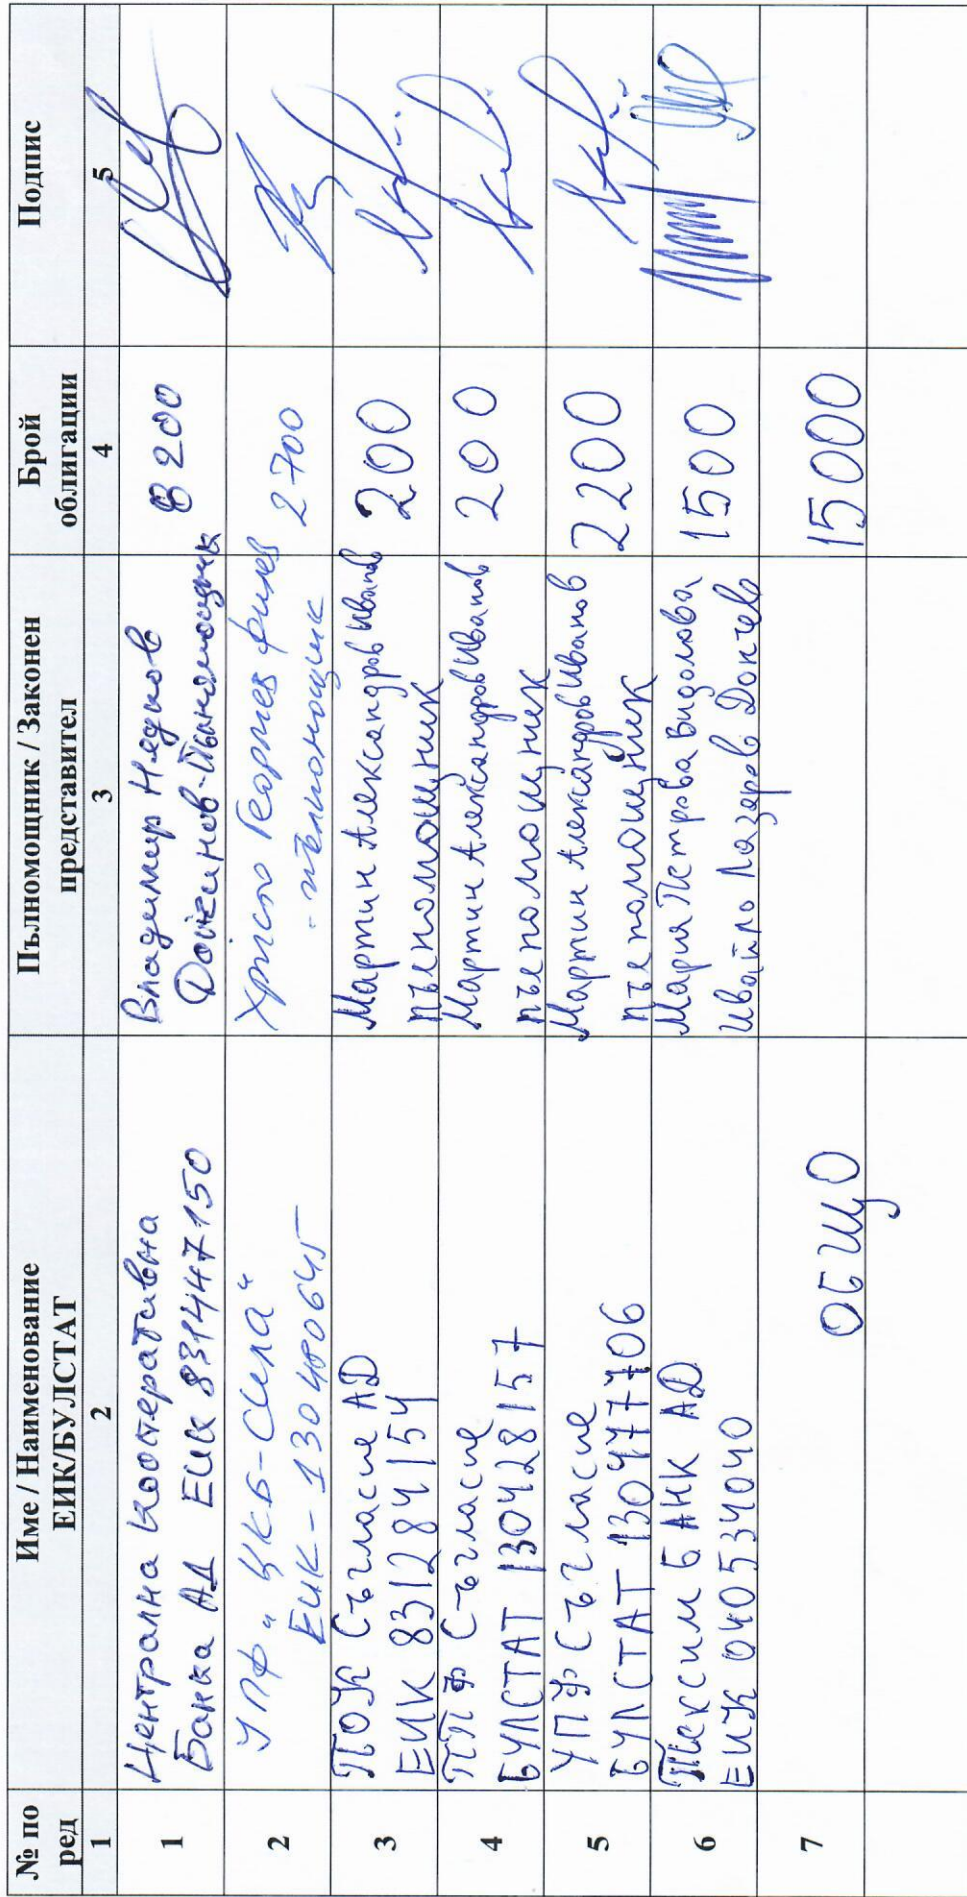 № по ред
Име / Наименование ЕИК/БУЛСТАТ
Пълномощник / Законен представител
Брой облигации
Подпис
1
2
3
4
5
1
Централна кооперативна
Банка АД ЕИК 831447150
Владимир Недков
Пълномощник
8200
2
УПФ „ЦКБ-Сила“
ЕИК - 130480645
Христо Георгиев
- пълномощник
2700
3
ПОК Съгласие АД
ЕИК 831284154
Мартин Александров Иванов
пълномощник
200
4
ППФ Съгласие
БУЛСТАТ 130428157
Мартин Александров Иванов
пълномощник
200
5
УПФ Съгласие
БУЛСТАТ 130477706
Мартин Александров Иванов
пълномощник
2200
6
Тексим БАНК АД
ЕИК 040534040
Мария Петрова Видолова
Ивайло Лазаров Дончев
1500
7
ОБЩО
15000